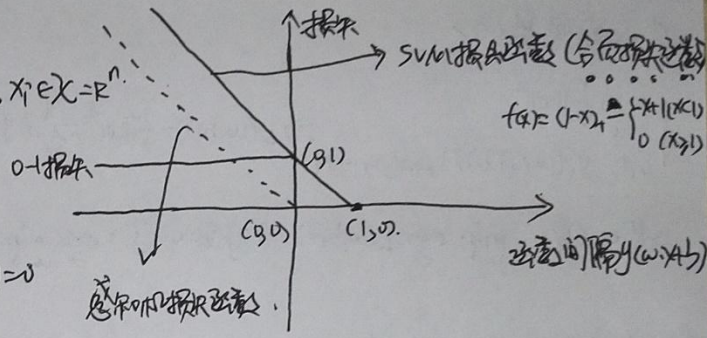 损失
SVM损失函数(合页损失函数)
xi∈X=Rⁿ.
f(x)=(1-x)+={-x+1(x<1)
0 (x≥1)
0-1损失
(0,1)
(0,0)
(1,0).
函数间隔y(w·x+b)
=0
感知机损失函数.